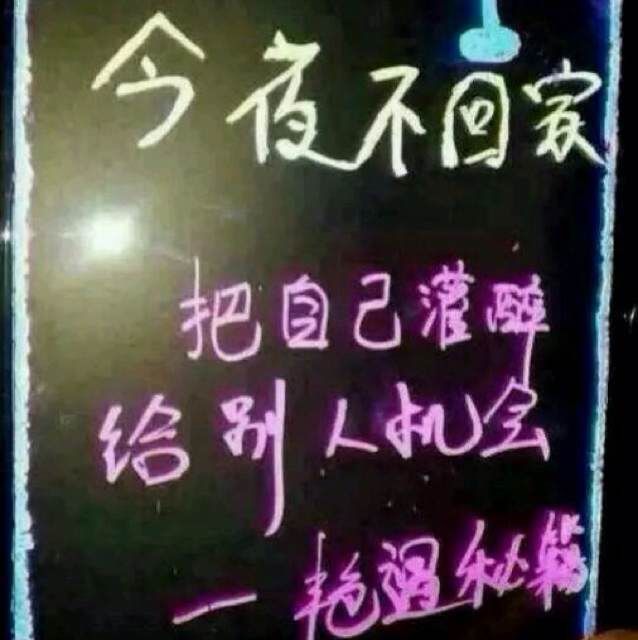 今夜不回家
把自己灌醉
给别人机会
一艳遇秘籍